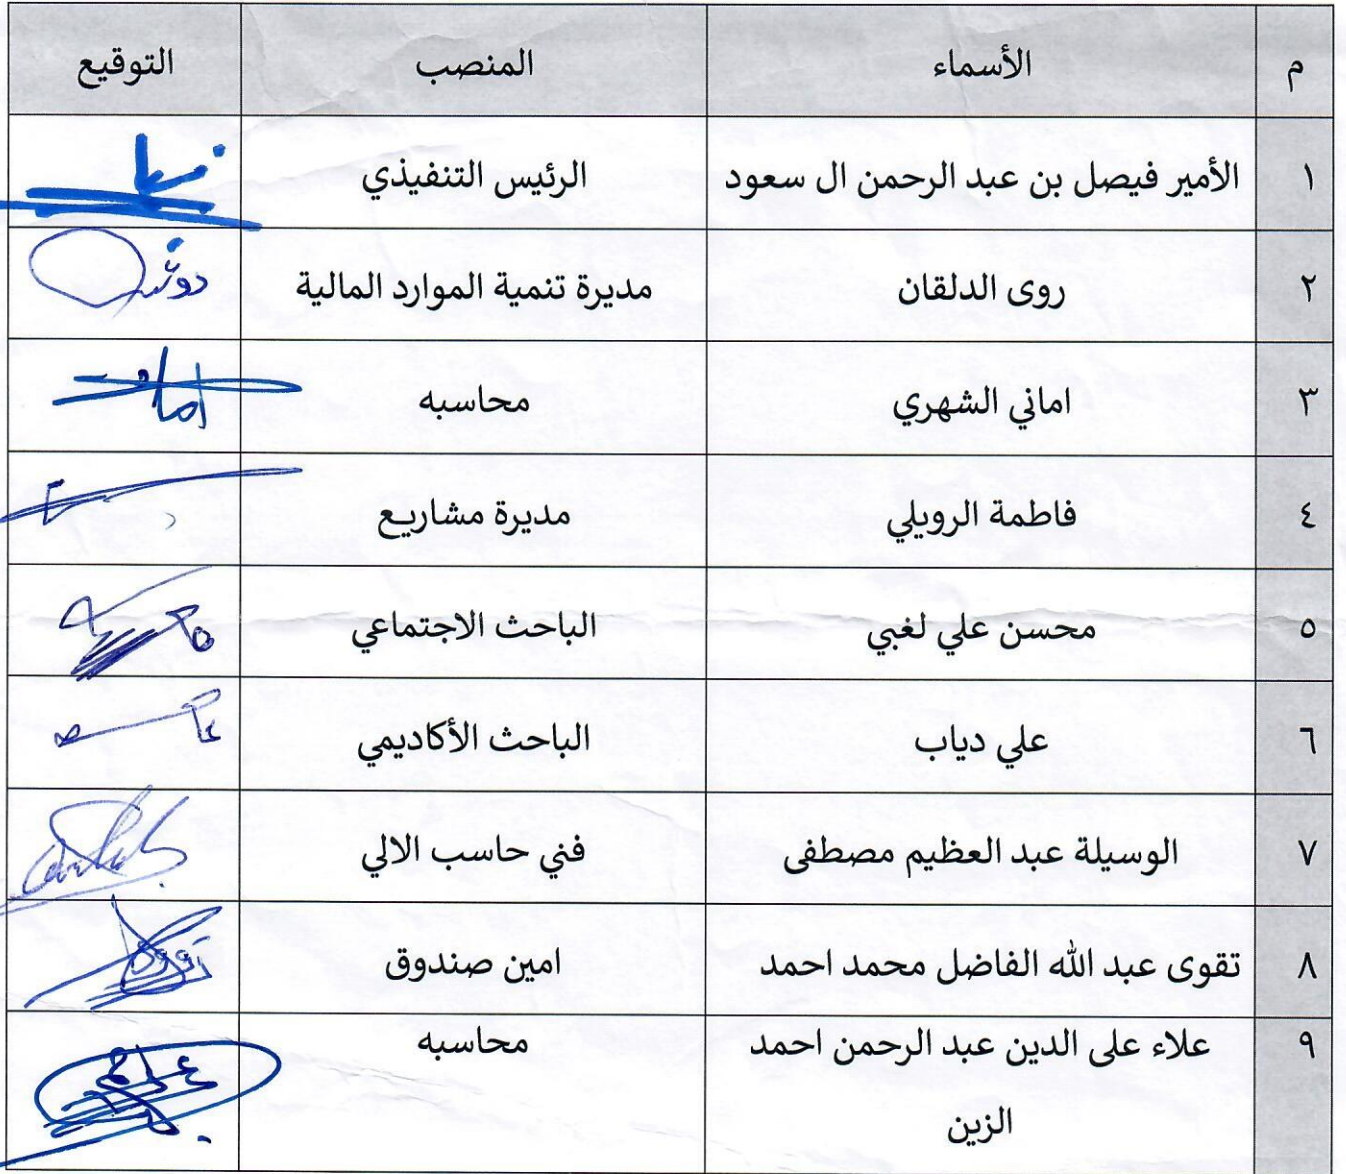 م الأسماء المنصب التوقيع
١ الأمير فيصل بن عبد الرحمن ال سعود الرئيس التنفيذي
٢ روى الدلقان مديرة تنمية الموارد المالية
٣ اماني الشهري محاسبه
٤ فاطمة الرويلي مديرة مشاريع
٥ محسن علي لغبي الباحث الاجتماعي
٦ علي دياب الباحث الأكاديمي
٧ الوسيلة عبد العظيم مصطفى فني حاسب الالي
٨ تقوى عبد الله الفاضل محمد احمد امين صندوق
٩ علاء على الدين عبد الرحمن احمد محاسبه
الزين